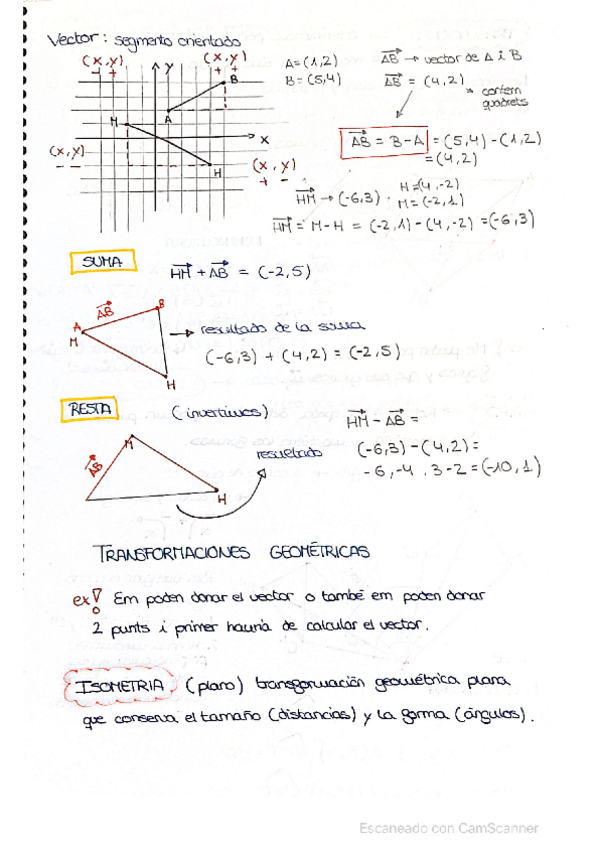 Vector: segmento orientado
(x,y)
- +
(x,y)
+ +
y
B
A
M
x
H
(x,y)
- -
(x,y)
+ -
A=(1,2)
B=(5,4)
AB → vector de A i B
AB = (4,2)
* contem quadrets
AB = B-A = (5,4) - (1,2)
= (4,2)
HM → (-6,3) · H=(4,-2)
M=(-2,1)
HM = M-H = (-2,1) - (4,-2) = (-6,3)
SUMA
HM + AB = (-2,5)
AB
A
M
B
H
→ resultado de la suma
(-6,3) + (4,2) = (-2,5)
RESTA
(invertimos)
HM - AB =
(-6,3) - (4,2) =
-6,-4 , 3-2 = (-10,1)
AB
M
H
resultado
TRANSFORMACIONES GEOMÉTRICAS
ex! Em poden donar el vector o també em poden donar
2 punts i primer hauria de calcular el vector.
ISOMETRIA, (plano) transformación geométrica plana
que conserva el tamaño (distancias) y la forma (ángulos).
Escaneado con CamScanner